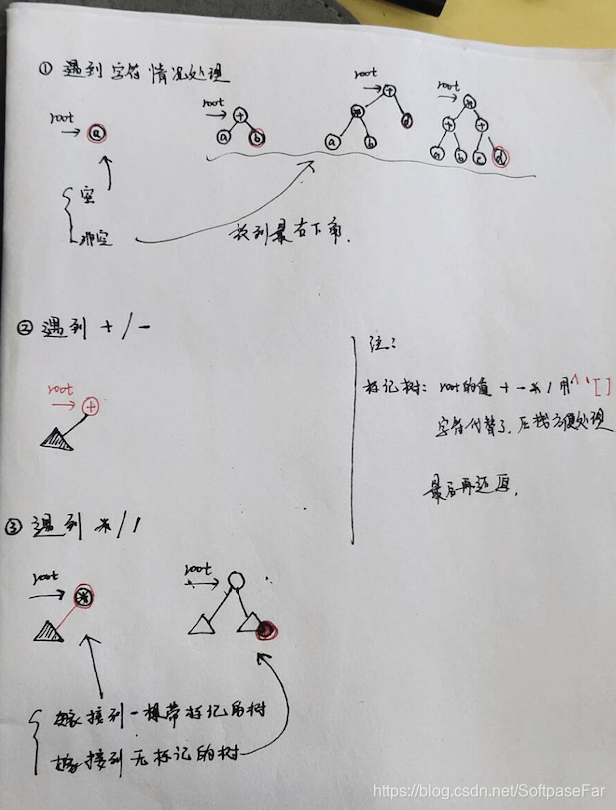 ① 遇到字符情况处理
root
a
root
+
a
b
root
+
*
a
b
root
*
+
+
a
b
c
d
空
非空
放到最右下角.
② 遇到 +/-
root
+
注:
标记树: root的值 + - * / 用 ^ ' [ ]
字符代替了, 后续方便处理
最后再还原.
③ 遇到 * / /
root
*
root
嫁接到一棵带标记的树
嫁接到无标记的树
https://blog.csdn.net/SoftpaseFar